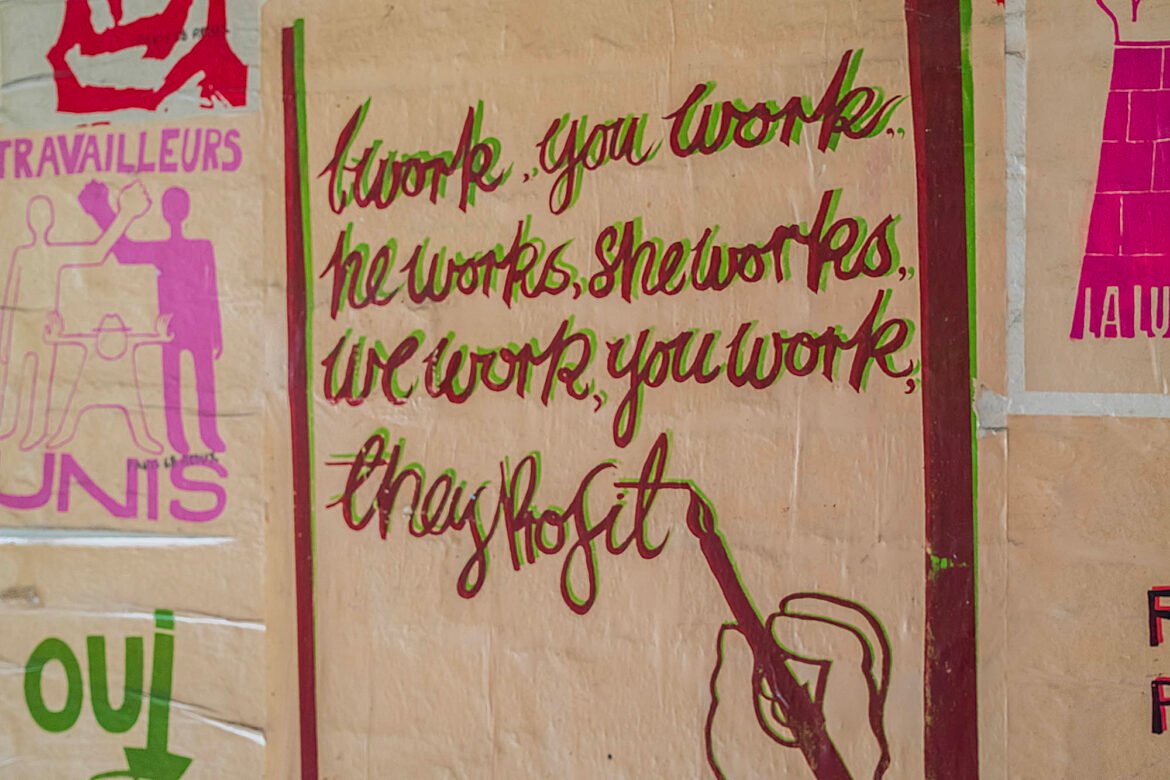 TRAVAILLEURS
UNIS
OUI
I work, you work,
he works, she works,
we work, you work,
they Profit
LA LU